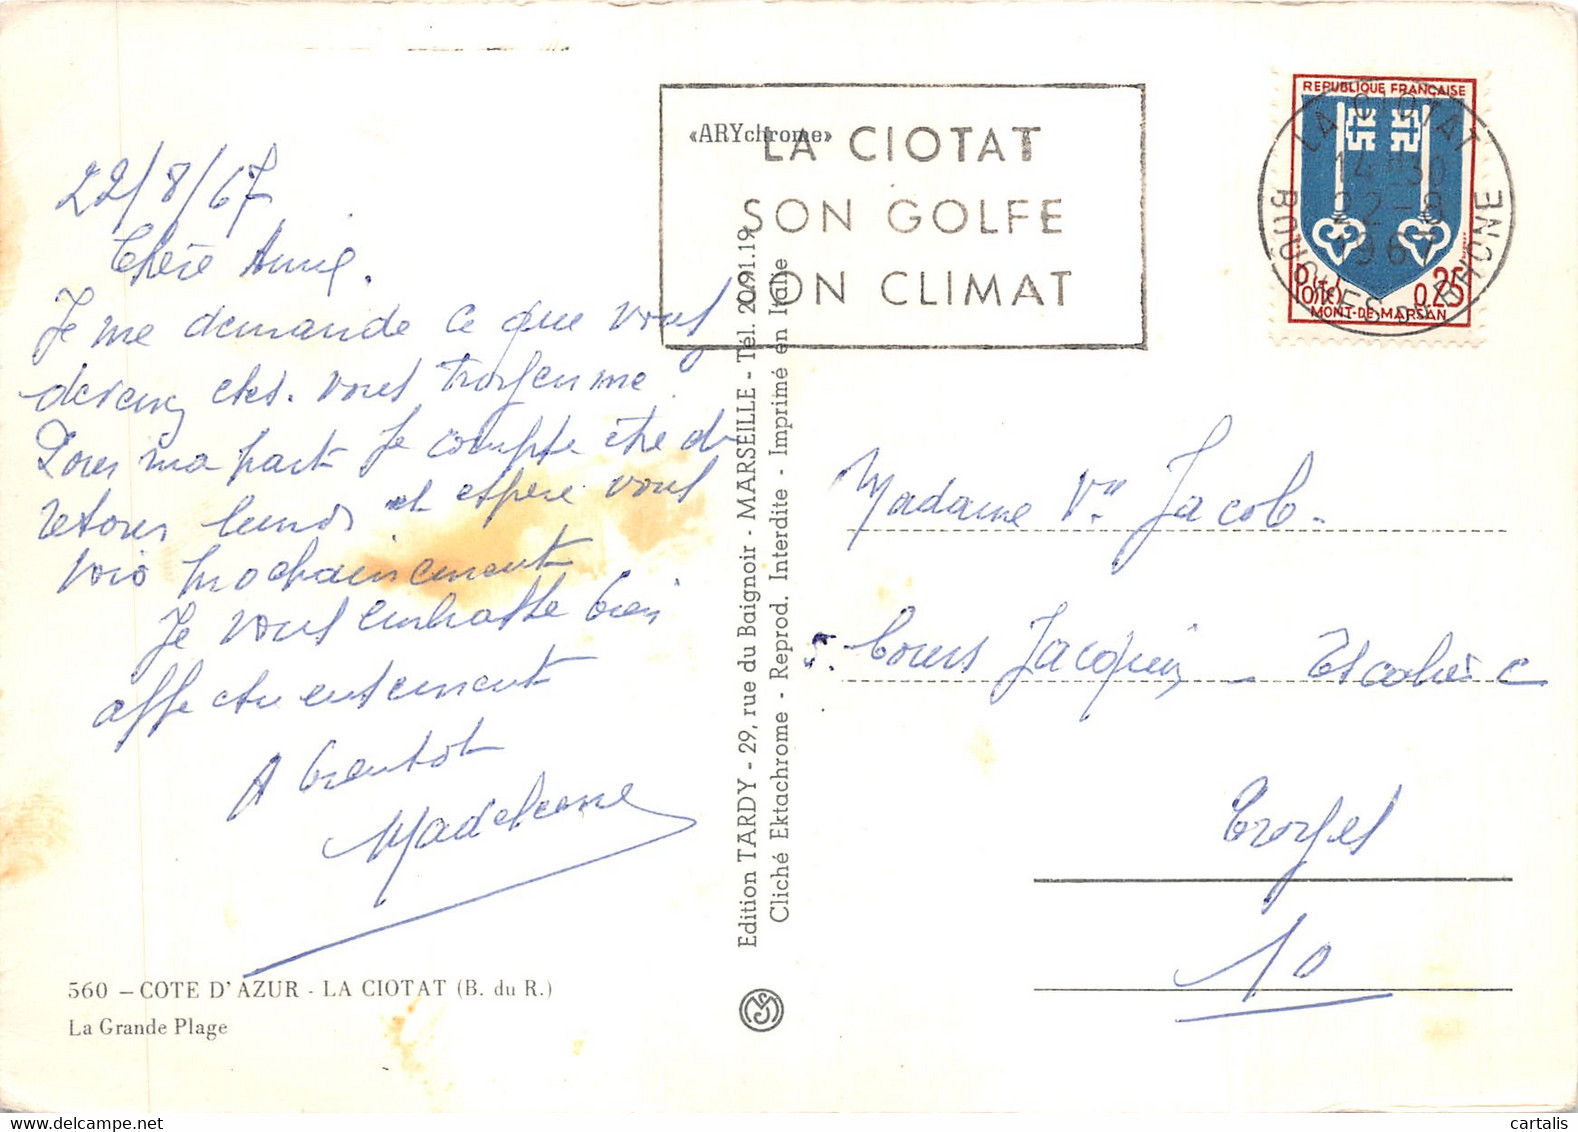 22/8/67
Chère Amie.
Je me demande ce que vous
devenez êtes. vous toujours
Pour ma part Je compte être de
retour lundi et espère vous
voir prochainement
Je vous embrasse bien
affectueusement
A bientôt
Madeleine
560 – COTE D'AZUR - LA CIOTAT (B. du R.)
La Grande Plage
Edition TARDY - 29, rue du Baignoir - MARSEILLE - Tél. 20.91.19
Cliché Ektachrome - Reprod. Interdite - Imprimé en Italie
«ARYchrome»
LA CIOTAT
SON GOLFE
SON CLIMAT
REPUBLIQUE FRANÇAISE
POSTES
0,25
MONT-DE-MARSAN
LA CIOTAT
14H30
22-8
1967
BOUCHES DU RHONE
Madame Vve Jacob.
5. Cours Jacquin
Troyes
10
cartalis